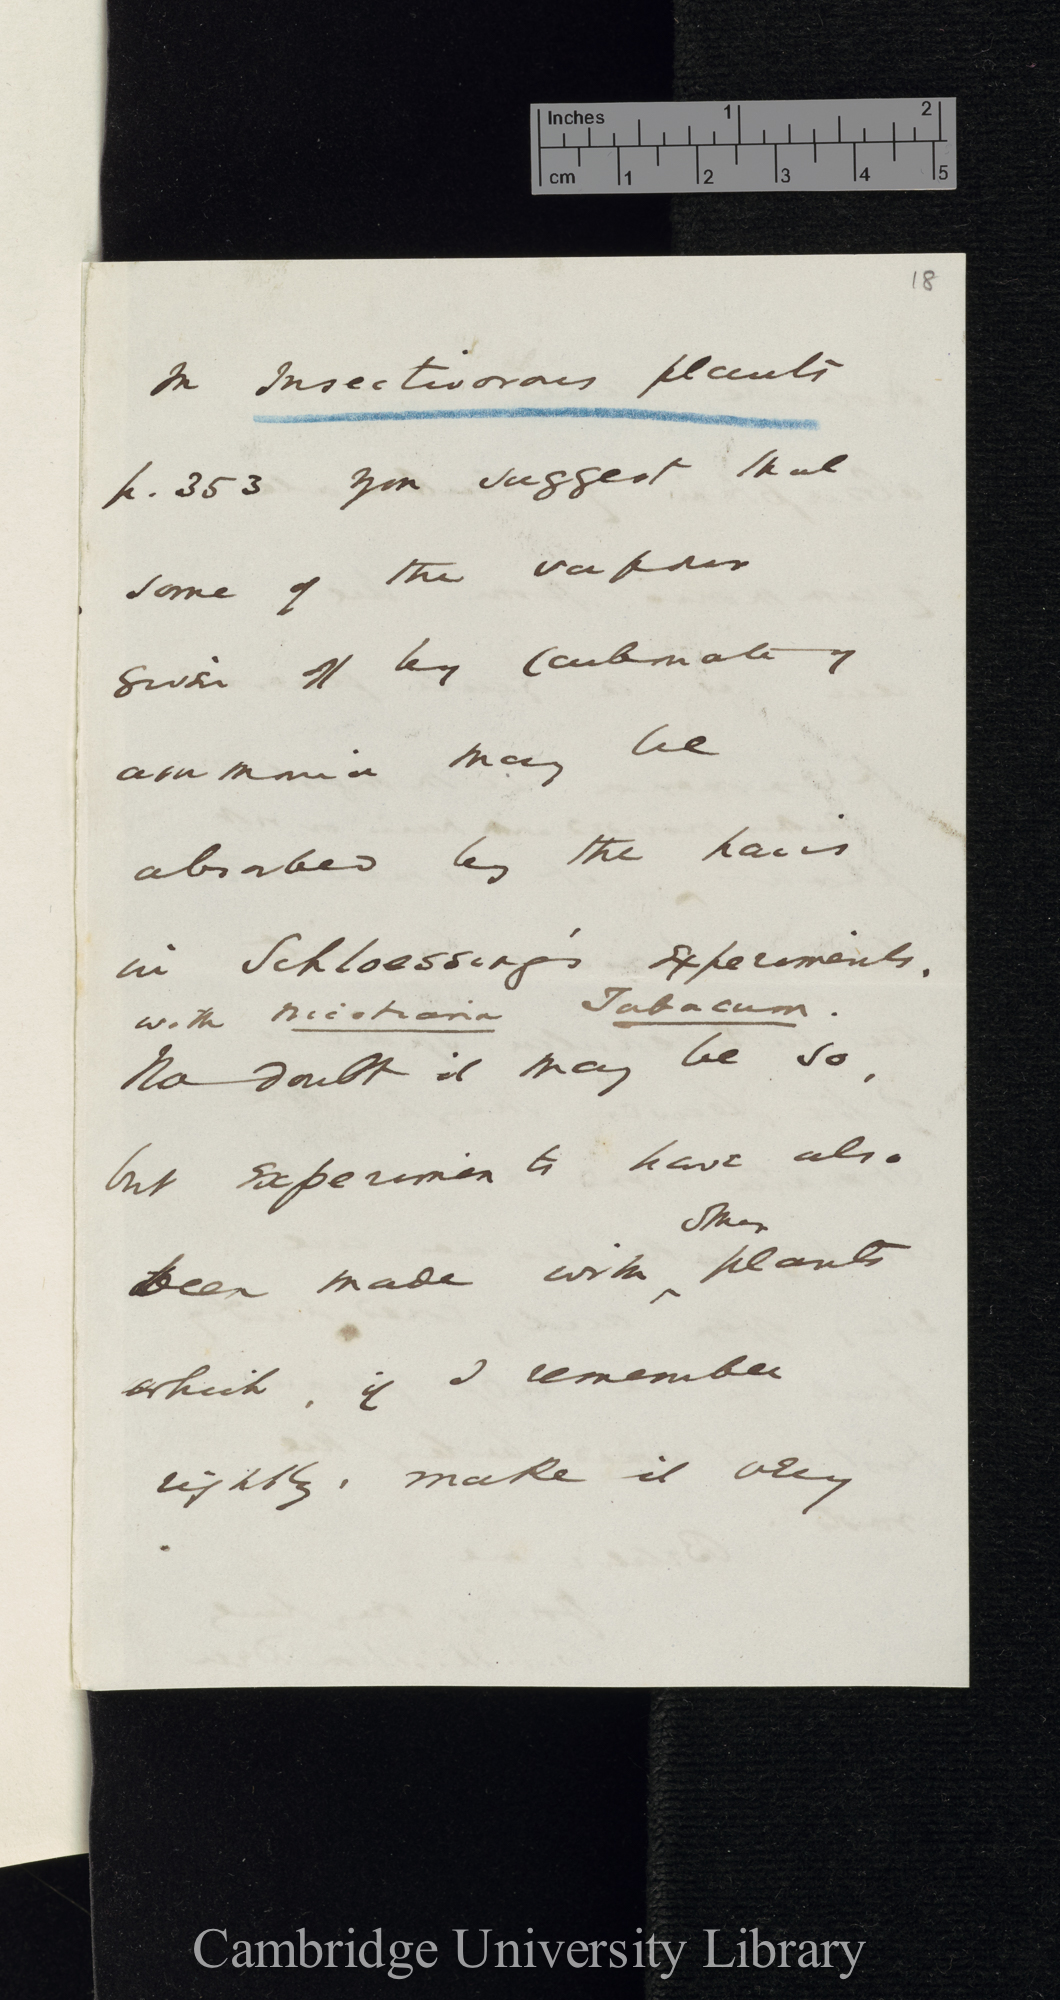 Inches 1 2
cm 1 2 3 4 5
18
In Insectivorous plants
p. 353 you suggest that
some of the vapour
given off by Carbonate of
ammonia may be
absorbed by the hairs
in Schloessing's experiments.
with Nicotiana Tabacum.
No doubt it may be so,
but experiments have also
other
been made with ‸ plants
which, if I remember
rightly, make it very
Cambridge University Library